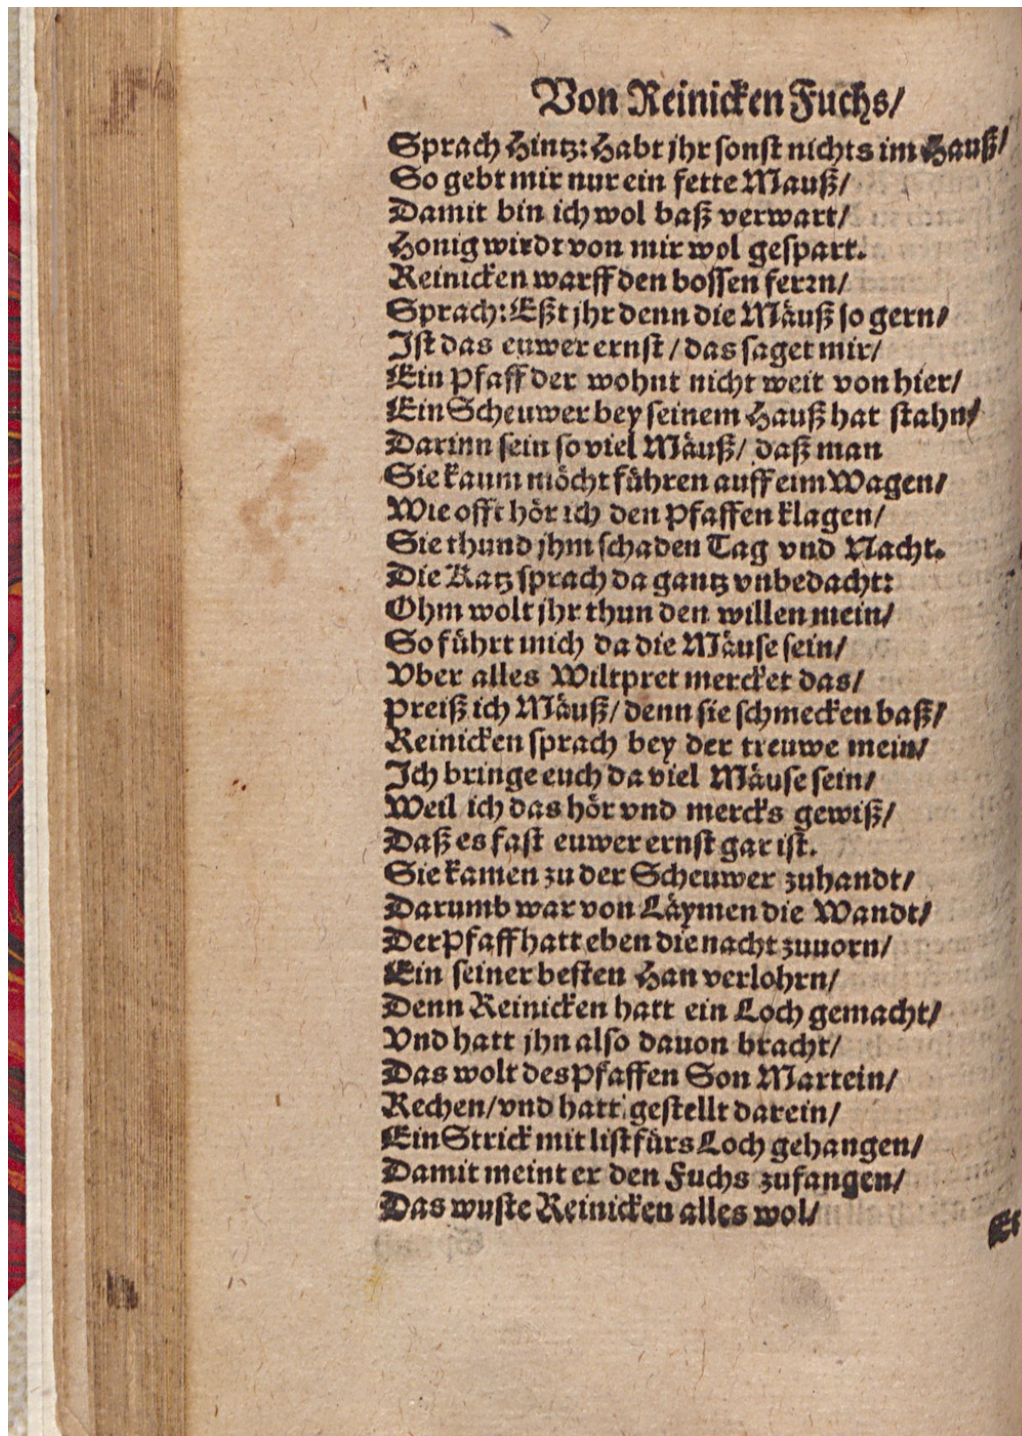 Von Reinicken Fuchs/
Sprach Hintz: Habt jhr sonst nichts im Hauß/
So gebt mir nur ein fette Mauß/
Damit bin ich wol baß verwart/
Honig wirdt von mir wol gespart.
Reinicken warff den bossen ferrn/
Sprach: Eßt jhr denn die Mäuß so gern/
Ist das euwer ernst / das saget mir/
Ein Pfaff der wohnt nicht weit von hier/
Ein Scheuwer bey seinem Hauß hat stahn/
Darinn sein so viel Mäuß/ daß man
Sie kaum möcht führen auff eim Wagen/
Wie offt hör ich den Pfaffen klagen/
Sie thund jhm schaden Tag vnd Nacht.
Die Katz sprach da gantz vnbedacht:
Ohm wolt jhr thun den willen mein/
So führt mich da die Mäuse sein/
Vber alles Wiltpret mercket das/
Preiß ich Mäuß/ denn sie schmecken baß/
Reinicken sprach bey der treuwe mein/
Ich bringe euch da viel Mäuse sein/
Weil ich das hör vnd mercks gewiß/
Daß es fast euwer ernst gar ist.
Sie kamen zu der Scheuwer zuhandt/
Darumb war von Läymen die Wandt/
Der Pfaff hatt eben die nacht zuuorn/
Ein seiner besten Han verlohrn/
Denn Reinicken hatt ein Loch gemacht/
Vnd hatt jhn also dauon bracht/
Das wolt des Pfaffen Son Martein/
Rechen/ vnd hatt gestellt darein/
Ein Strick mit list fürs Loch gehangen/
Damit meint er den Fuchs zufangen/
Das wuste Reinicken alles wol/